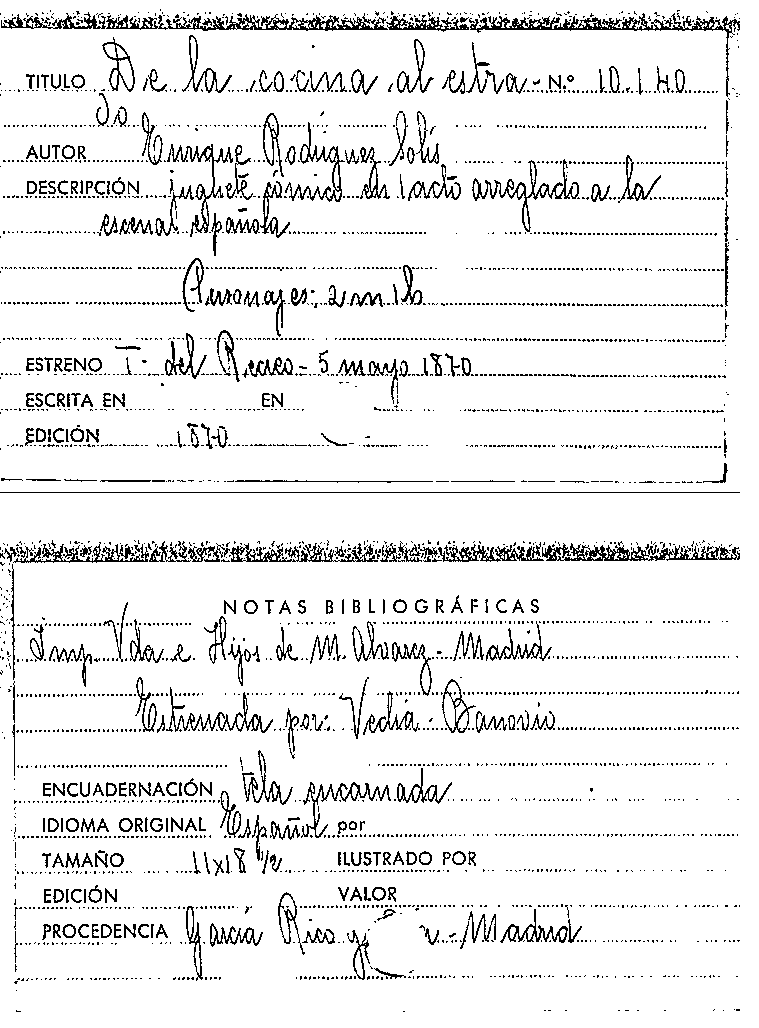 TITULO De la cocina al estra- N.º 10.140
do
AUTOR Enrique Rodríguez Solís
DESCRIPCIÓN juguete cómico en 1 acto arreglado a la
escena española
Personajes: 2 m 1 h
ESTRENO T. del Recreo - 5 mayo 1870
ESCRITA EN EN
EDICIÓN 1870
NOTAS BIBLIOGRÁFICAS
Imp. Vda e Hijos de M. Alvarez - Madrid
Estrenada por: Vediá - Banovio
ENCUADERNACIÓN tela encarnada
IDIOMA ORIGINAL Español por
TAMAÑO 11x18 1/2 ILUSTRADO POR
EDICIÓN VALOR
PROCEDENCIA García Rico y - Madrid